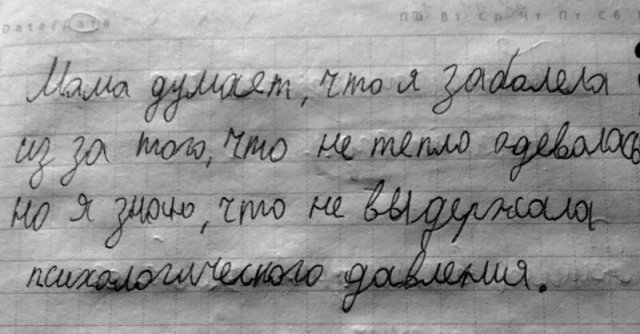 Date/Дата Пн Вт Ср Чт Пт Сб
Мама думает, что я забалела
из за того, что не тепло одевалась
но я знаю, что не выдержала
психологического давления.